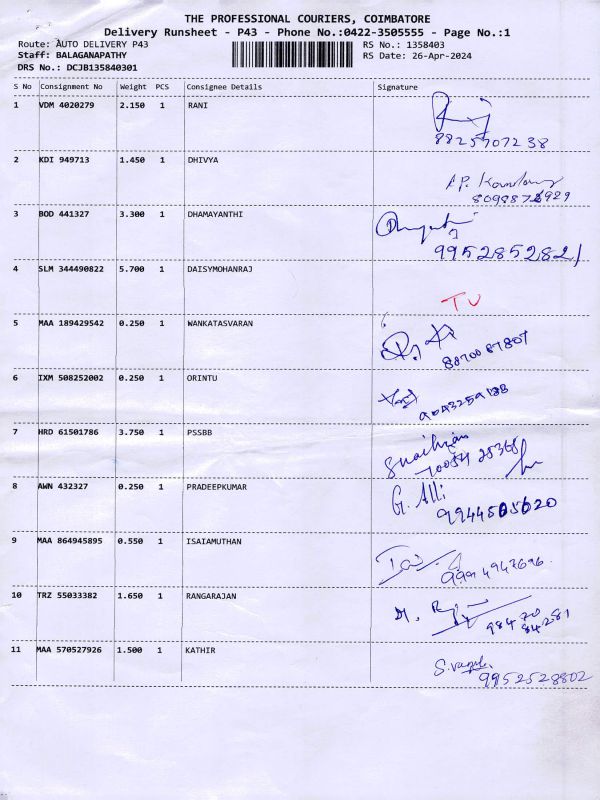 THE PROFESSIONAL COURIERS, COIMBATORE
Delivery Runsheet - P43 - Phone No.:0422-3505555 - Page No.:1
Route: AUTO DELIVERY P43 RS No.: 1358403
Staff: BALAGANAPATHY RS Date: 26-Apr-2024
DRS No.: DCJB135840301
S No Consignment No Weight PCS Consignee Details Signature
1 VDM 4020279 2.150 1 RANI
8825707238
2 KDI 949713 1.450 1 DHIVYA
3 BOD 441327 3.300 1 DHAMAYANTHI
9952852821
4 SLM 344490822 5.700 1 DAISYMOHANRAJ
TU
5 MAA 189429542 0.250 1 WANKATASVARAN
8870087807
6 IXM 508252002 0.250 1 ORINTU
7 HRD 61501786 3.750 1 PSSBB
8 AWN 432327 0.250 1 PRADEEPKUMAR
G. Alli
9944505620
9 MAA 864945895 0.550 1 ISAIAMUTHAN
10 TRZ 55033382 1.650 1 RANGARAJAN
98470
84281
11 MAA 570527926 1.500 1 KATHIR
9952528802